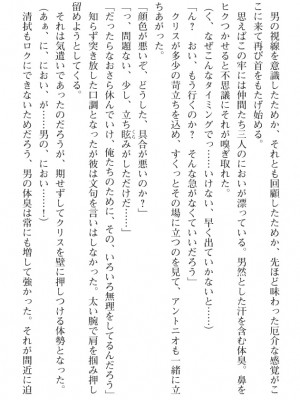 男の視線を意識したためか、それとも回顧したためか、先ほど味わった厄介な感覚がこ
こに来て再び首をもたげ始める。
思えばこの牢には仲間たち三人のにおいが漂っている。男然とした汗を含む体臭。鼻を
ヒクつかせると不思議にそれが嗅ぎ取れた。
(く、なぜこんなタイミングでっ……いけない、早く出ていかないと……)
「ん？　おい、もう行くのか？　そんな急がなくていいだろう」
クリスが多少の苛立ちを込め、すくっとその場に立つのを見て、アントニオも一緒に立
ちあがった。
「顔色が悪いぞ、どうした、具合が悪いのか？」
「っ、問題ない、少し、立ち眩みがしただけだ……」
「だったらなおさら休んでいけ、俺たちのために、その、いろいろ無理をしてるんだろう」
知らず突き放した口調となったが彼は文句を言いはしなかった。太い腕で肩を掴み押し
留めようとしてくる。
それは気遣いであったのだろうが、期せずしてクリスを壁に押しつける体勢となった。
(あぁ、に、におい、が……男の、におい……！)
清拭もロクにできないためだろう、男の体臭は常にも増して強かった。それが間近に迫